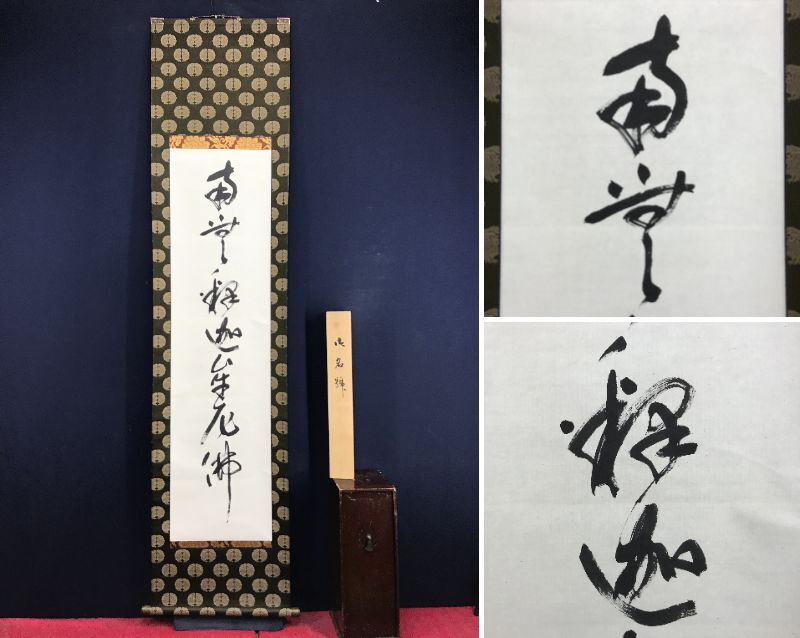 南無釋迦牟尼佛
御名号
南無
釋迦